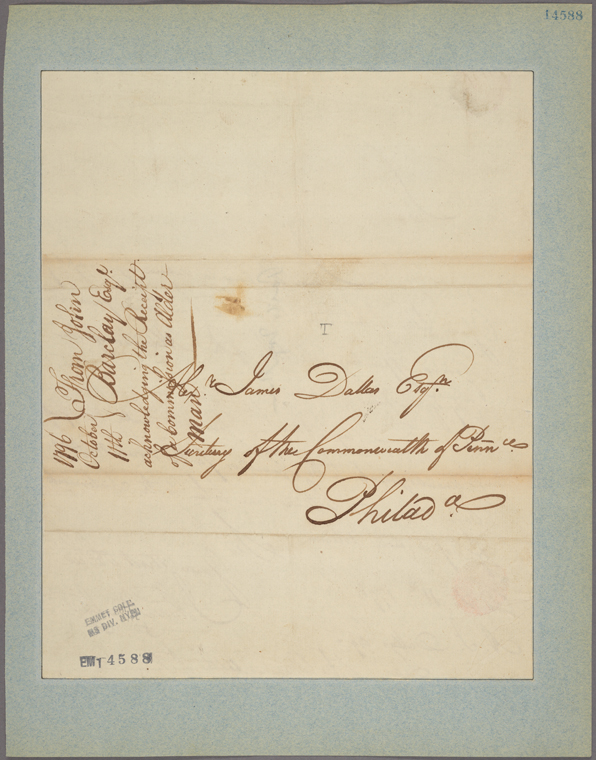 14588
1796
October
11th
From John
Barclay Esqr.
acknowledging the Receipt
of a Commission as Alder
man
Alexr. James Dallas Esqr.
Secretary of the Commonwealth of Pennce.
Philada.
T
EMMET COLL.
MS DIV. NYPL
EM 14588